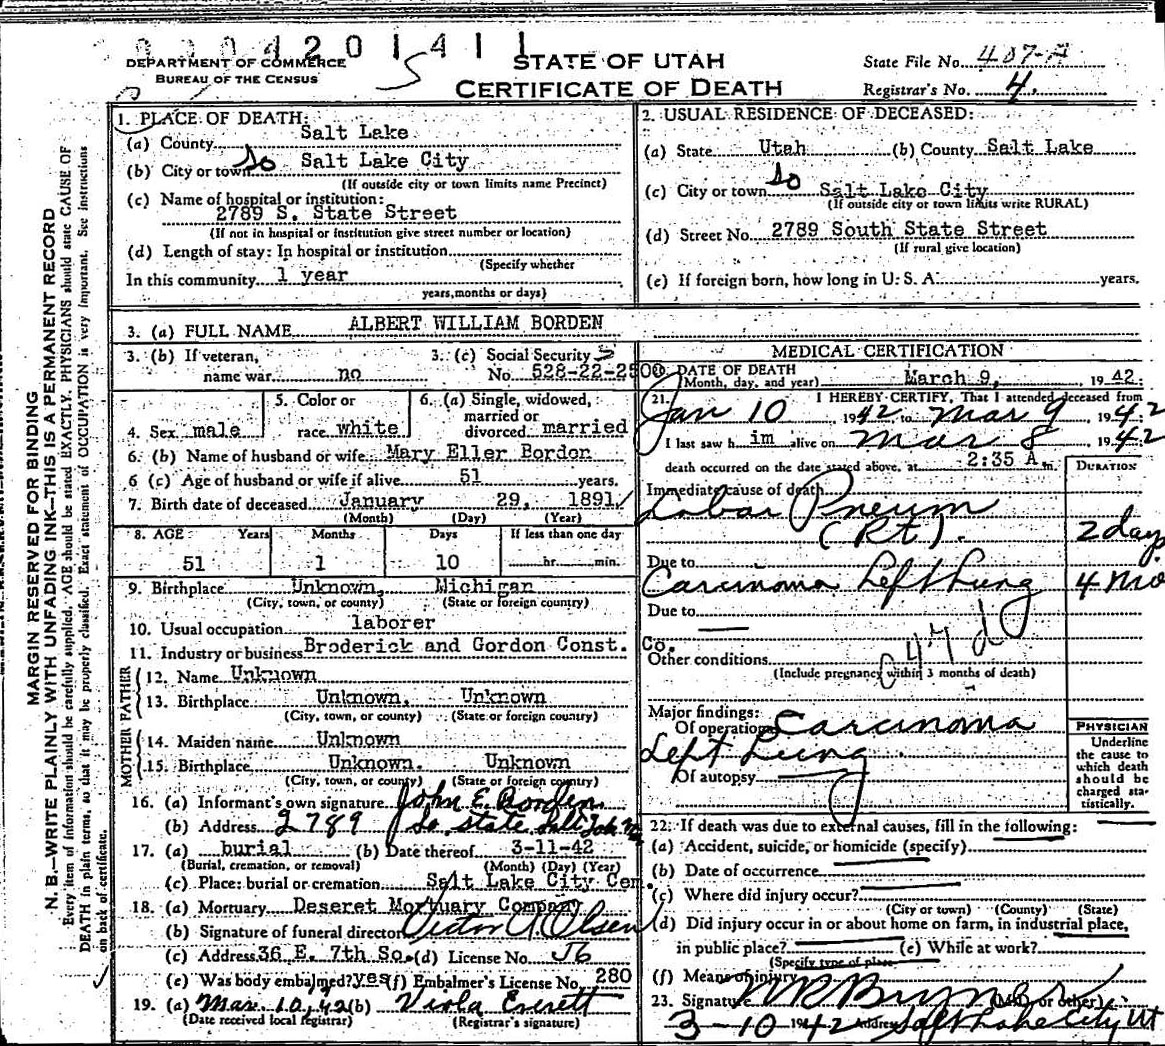 0 0 0 4 2 0 1 5 4 1 1
DEPARTMENT OF COMMERCE
BUREAU OF THE CENSUS
STATE OF UTAH
CERTIFICATE OF DEATH
State File No. 407-A
Registrar's No. 4.
MARGIN RESERVED FOR BINDING
N. B.—WRITE PLAINLY WITH UNFADING INK—THIS IS A PERMANENT RECORD
Every item of information should be carefully supplied. AGE should be stated EXACTLY. PHYSICIANS should state CAUSE OF
DEATH in plain terms, so that it may be properly classified. Exact statement of OCCUPATION is very important. See instructions
on back of certificate.
1. PLACE OF DEATH:
(a) County Salt Lake
(b) City or town So Salt Lake City
(If outside city or town limits name Precinct)
(c) Name of hospital or institution:
2789 S. State Street
(If not in hospital or institution give street number or location)
(d) Length of stay: In hospital or institution
(Specify whether
In this community 1 year
years, months or days)
2. USUAL RESIDENCE OF DECEASED:
(a) State Utah (b) County Salt Lake
(c) City or town So Salt Lake City
(If outside city or town limits write RURAL)
(d) Street No. 2789 South State Street
(If rural give location)
(e) If foreign born, how long in U. S. A. years.
3. (a) FULL NAME ALBERT WILLIAM BORDEN
3. (b) If veteran, name war no
3. (c) Social Security No. 528-22-2500
4. Sex male
5. Color or race white
6. (a) Single, widowed, married or divorced married
6. (b) Name of husband or wife Mary Eller Bordon
6 (c) Age of husband or wife if alive 51 years.
7. Birth date of deceased January 29, 1891
(Month) (Day) (Year)
8. AGE Years Months Days If less than one day
51 1 10 hr. min.
9. Birthplace Unknown, Michigan
(City, town, or county) (State or foreign country)
10. Usual occupation laborer
11. Industry or business Broderick and Gordon Const. Co.
FATHER
12. Name Unknown
13. Birthplace Unknown, Unknown
(City, town, or county) (State or foreign country)
MOTHER
14. Maiden name Unknown
15. Birthplace Unknown. Unknown
(City, town, or county) (State or foreign country)
16. (a) Informant's own signature John E. Borden
(b) Address 2789 So. State Salt Lake
17. (a) burial (b) Date thereof 3-11-42
(Burial, cremation, or removal) (Month) (Day) (Year)
(c) Place: burial or cremation Salt Lake City Cem.
18. (a) Mortuary Deseret Mortuary Company
(b) Signature of funeral director Victor A Olsen
(c) Address 36 E. 7th So. (d) License No. J6
(e) Was body embalmed? yes (f) Embalmer's License No. 280
19. (a) Mar. 10, 42 (b) Viola Everett
(Date received local registrar) (Registrar's signature)
MEDICAL CERTIFICATION
20. DATE OF DEATH
(Month, day, and year) March 9, 1942.
21. I HEREBY CERTIFY, That I attended deceased from
Jan 10 1942 to Mar 9 1942
I last saw him alive on Mar 8 1942
death occurred on the date stated above, at 2:35 A m.
DURATION
Immediate cause of death
Lobar Pneum
(Rt). 2 day
Due to
Carcinoma Left Lung 4 Mo
Due to
47 d
Other conditions
(Include pregnancy within 3 months of death)
Major findings:
Of operation Carcinoma
Left Lung
Of autopsy
PHYSICIAN
Underline
the cause to
which death
should be
charged sta-
tistically.
22. If death was due to external causes, fill in the following:
(a) Accident, suicide, or homicide (specify)
(b) Date of occurrence
(c) Where did injury occur?
(City or town) (County) (State)
(d) Did injury occur in or about home on farm, in industrial place,
in public place? (e) While at work?
(Specify type of place)
(f) Means of injury
23. Signature (M.D. or other)
3-10 1942 Address Salt Lake City Ut